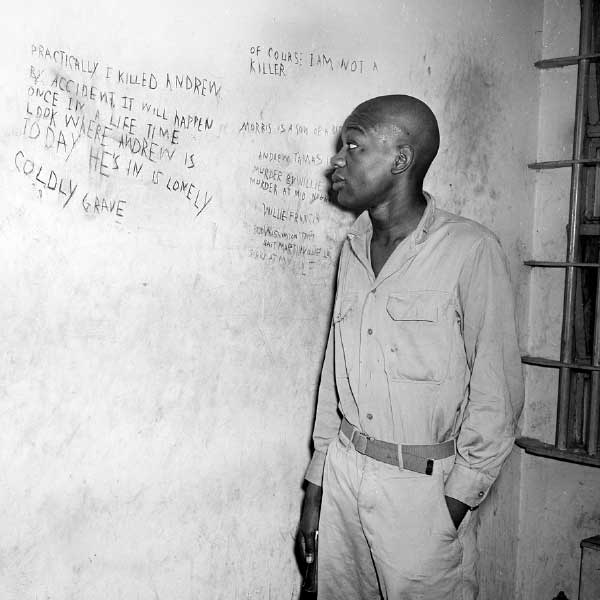 PRACTICALLY I KILLED ANDREW
BY ACCIDENT, IT WILL HAPPEN
ONCE IN A LIFE TIME
LOOK WHERE ANDREW IS
TODAY HE'S IN IS LONELY
COLDLY GRAVE
OF COURSE I AM NOT A
KILLER
MORRIS IS A SON OF A
ANDREW TOMAS
MURDER BY WILLIE
MURDER AT MID
WILLIE FRANCIS
SAINT MARTINVILLE LA